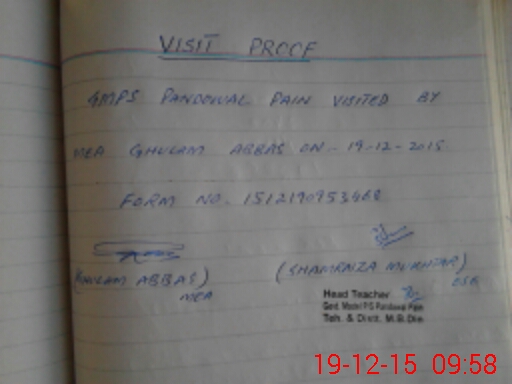 VISIT PROOF
GMPS PANDOWAL PAIN VISITED BY
MEA GHULAM ABBAS ON - 19-12-2015
FORM NO. 151219095346
(GHULAM ABBAS)
MEA
(SHAMRAIZA MUKHTAR)
ESE
Head Teacher
Govt. Model P/S Pandowal Pain
Teh. & Distt. M.B.Din
19-12-15 09:58